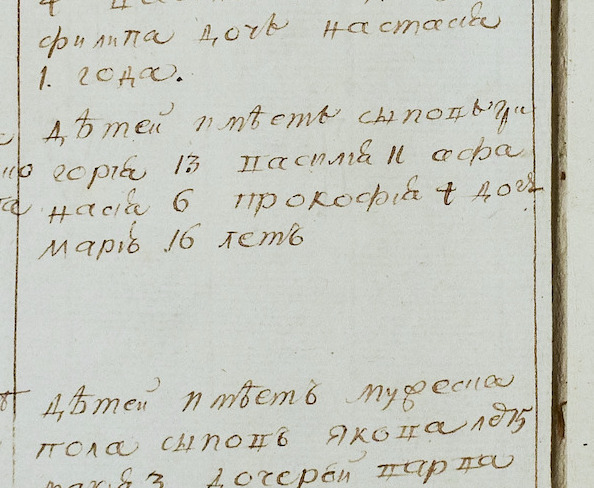 филипа дочь настасія
1. года.
дѣтей имѣетъ сыновъ гри
горія 13 василія 11 афа
насія 6 прокофія 4 дочь
марію 16 летъ
дѣтей имѣетъ мужеска
пола сыновъ якова лѣт 15
3 дочерей варва